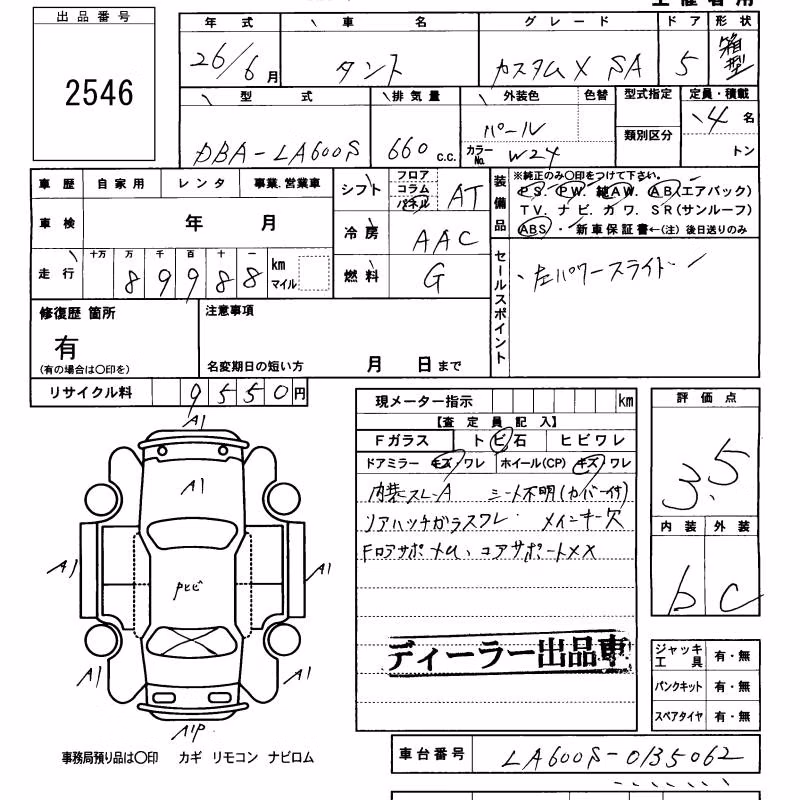 出品番号
2546
年式 車名 グレード ドア 形状
26/6月 タント カスタムX SA 5 箱型
型式 排気量 外装色 色替 型式指定 定員・積載
DBA-LA600S 660 c.c. パール カラーNo. W24 類別区分 4名 トン
車歴 自家用 レンタ 事業.営業車
車検 年 月
走行 十万 万 千 百 十 一 km マイル
89988
シフト フロア コラム パネル AT
冷房 AAC
燃料 G
装備品
※純正のみ○印をつけて下さい。
PS. PW. 純AW. AB(エアバック)
TV. ナビ. カワ. SR(サンルーフ)
ABS・ 新車保証書←(注) 後日送りのみ
セールスポイント
左パワースライドー
修復歴 箇所
有
(有の場合は○印を)
注意事項
名変期日の短い方 月 日まで
リサイクル料 9550円
現メーター指示 km
【査定員記入】
Fガラス トビ石 ヒビワレ
ドアミラー キズ・ワレ ホイール(CP) キズ ワレ
内装スレ-A シート不明(カバー付)
リアハッチガラスワレ メインキー欠
Fロアサポ コアサポートXX
ディーラー出品車
評価点
3.5
内装 外装
b C
ジャッキ工具 有・無
パンクキット 有・無
スペアタイヤ 有・無
A1
A1
A1
A1
Pヒビ
A1
A1
A1P
事務局預り品は○印 カギ リモコン ナビロム
車台番号 LA600S-0135062